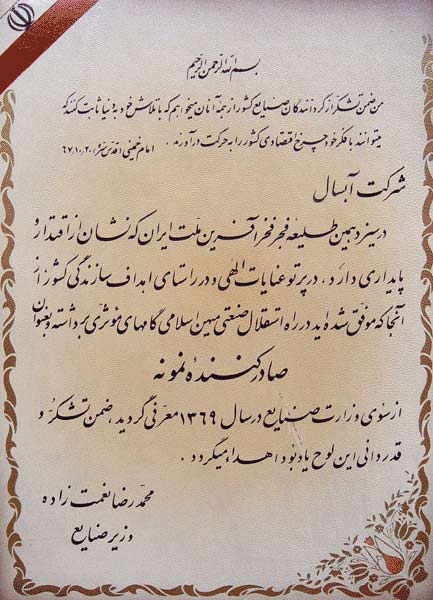 بسم الله الرحمن الرحیم
من ضمن تشکر از گردانندگان صنایع کشور از همهٔ آنان میخواهم که با تلاش خود به دنیا ثابت کنند که
میتوانند با فکر خود چرخ اقتصادی کشور را به حرکت درآورند. امام خمینی (قدس سره) ۶۷,۱۰,۲۰
شرکت آبسال
در سیزدهمین طلیعهٔ فجر فخرآفرین ملت ایران که نشان از اقتدار و
پایداری دارد، در پرتو عنایات الهی و در راستای اهداف سازندگی کشور از
آنجا که موفق شده‌اید در راه استقلال صنعتی میهن اسلامی گامهای مؤثری برداشته و بعنوان
صادرکنندهٔ نمونه
از سوی وزارت صنایع در سال ۱۳۶۹ معرفی گردید، ضمن تشکر و
قدردانی این لوح یادبود اهداء میگردد.
محمدرضا نعمت زاده
وزیر صنایع